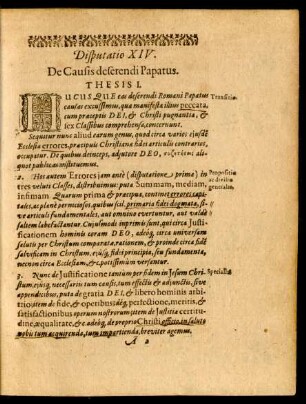 Disputatio XIV.
De Causis deserendi Papatus.
THESIS I.
HUCUSQUE eas deserendi Romani Papatus
causas excussimus, quæ manifesta illius peccata,
cum præceptis DEI, & Christi pugnantia, &
sex Classibus comprehensa, concernunt.
Transitio.
Sequitur nunc aliud earum genus, quod circa varios ejusdē
Ecclesiæ errores, præcipuis Christianæ fidei articulis contrarios,
occupatur. De quibus deinceps, adjutore DEO,
aliquot publicas instituemus.
2. Hos autem Errores jam antè (disputatione 2. prima) in
tres veluti Classes, distribuimus: puta Summam, mediam,
infimam. Quarum prima & præcipua, continet errores capi-
tales, ac planè perniciosos, quibus scil. primaria fidei dogmata, si-
ve articuli fundamentales, aut omnino evertuntur, aut valdè
saltem labefactantur. Cujusmodi inprimis sunt, qui circa Justi-
ficationem hominis coram DEO, & adeò, circa universam
salutis per Christum comparatæ rationem, & proinde circa fidē
salvificam in Christum, ejusq́; fidei principia, seu fundamenta,
nec non circa Ecclesiam, &c. potissimùm versantur.
Propositio
generalis.
3. Nunc de Justificatione tantùm per fidem in Jesum Chri-
stum, ejusq́; necessariis tum causis, tum effectis & adjunctis, sive
appendicibus, puta de gratia DEI, & libero hominis arbi-
trio; item de fide, & operibus; adeoq́; perfectione, meritis, &
satisfactionibus operum nostrorum: item de Justitiæ certitu-
dine, æqualitate, &c. adeoq́; de proprio Christi officio, in salute
nobis tum acquirenda, tum impartienda, breviter agemus.
Specialis.
A 2